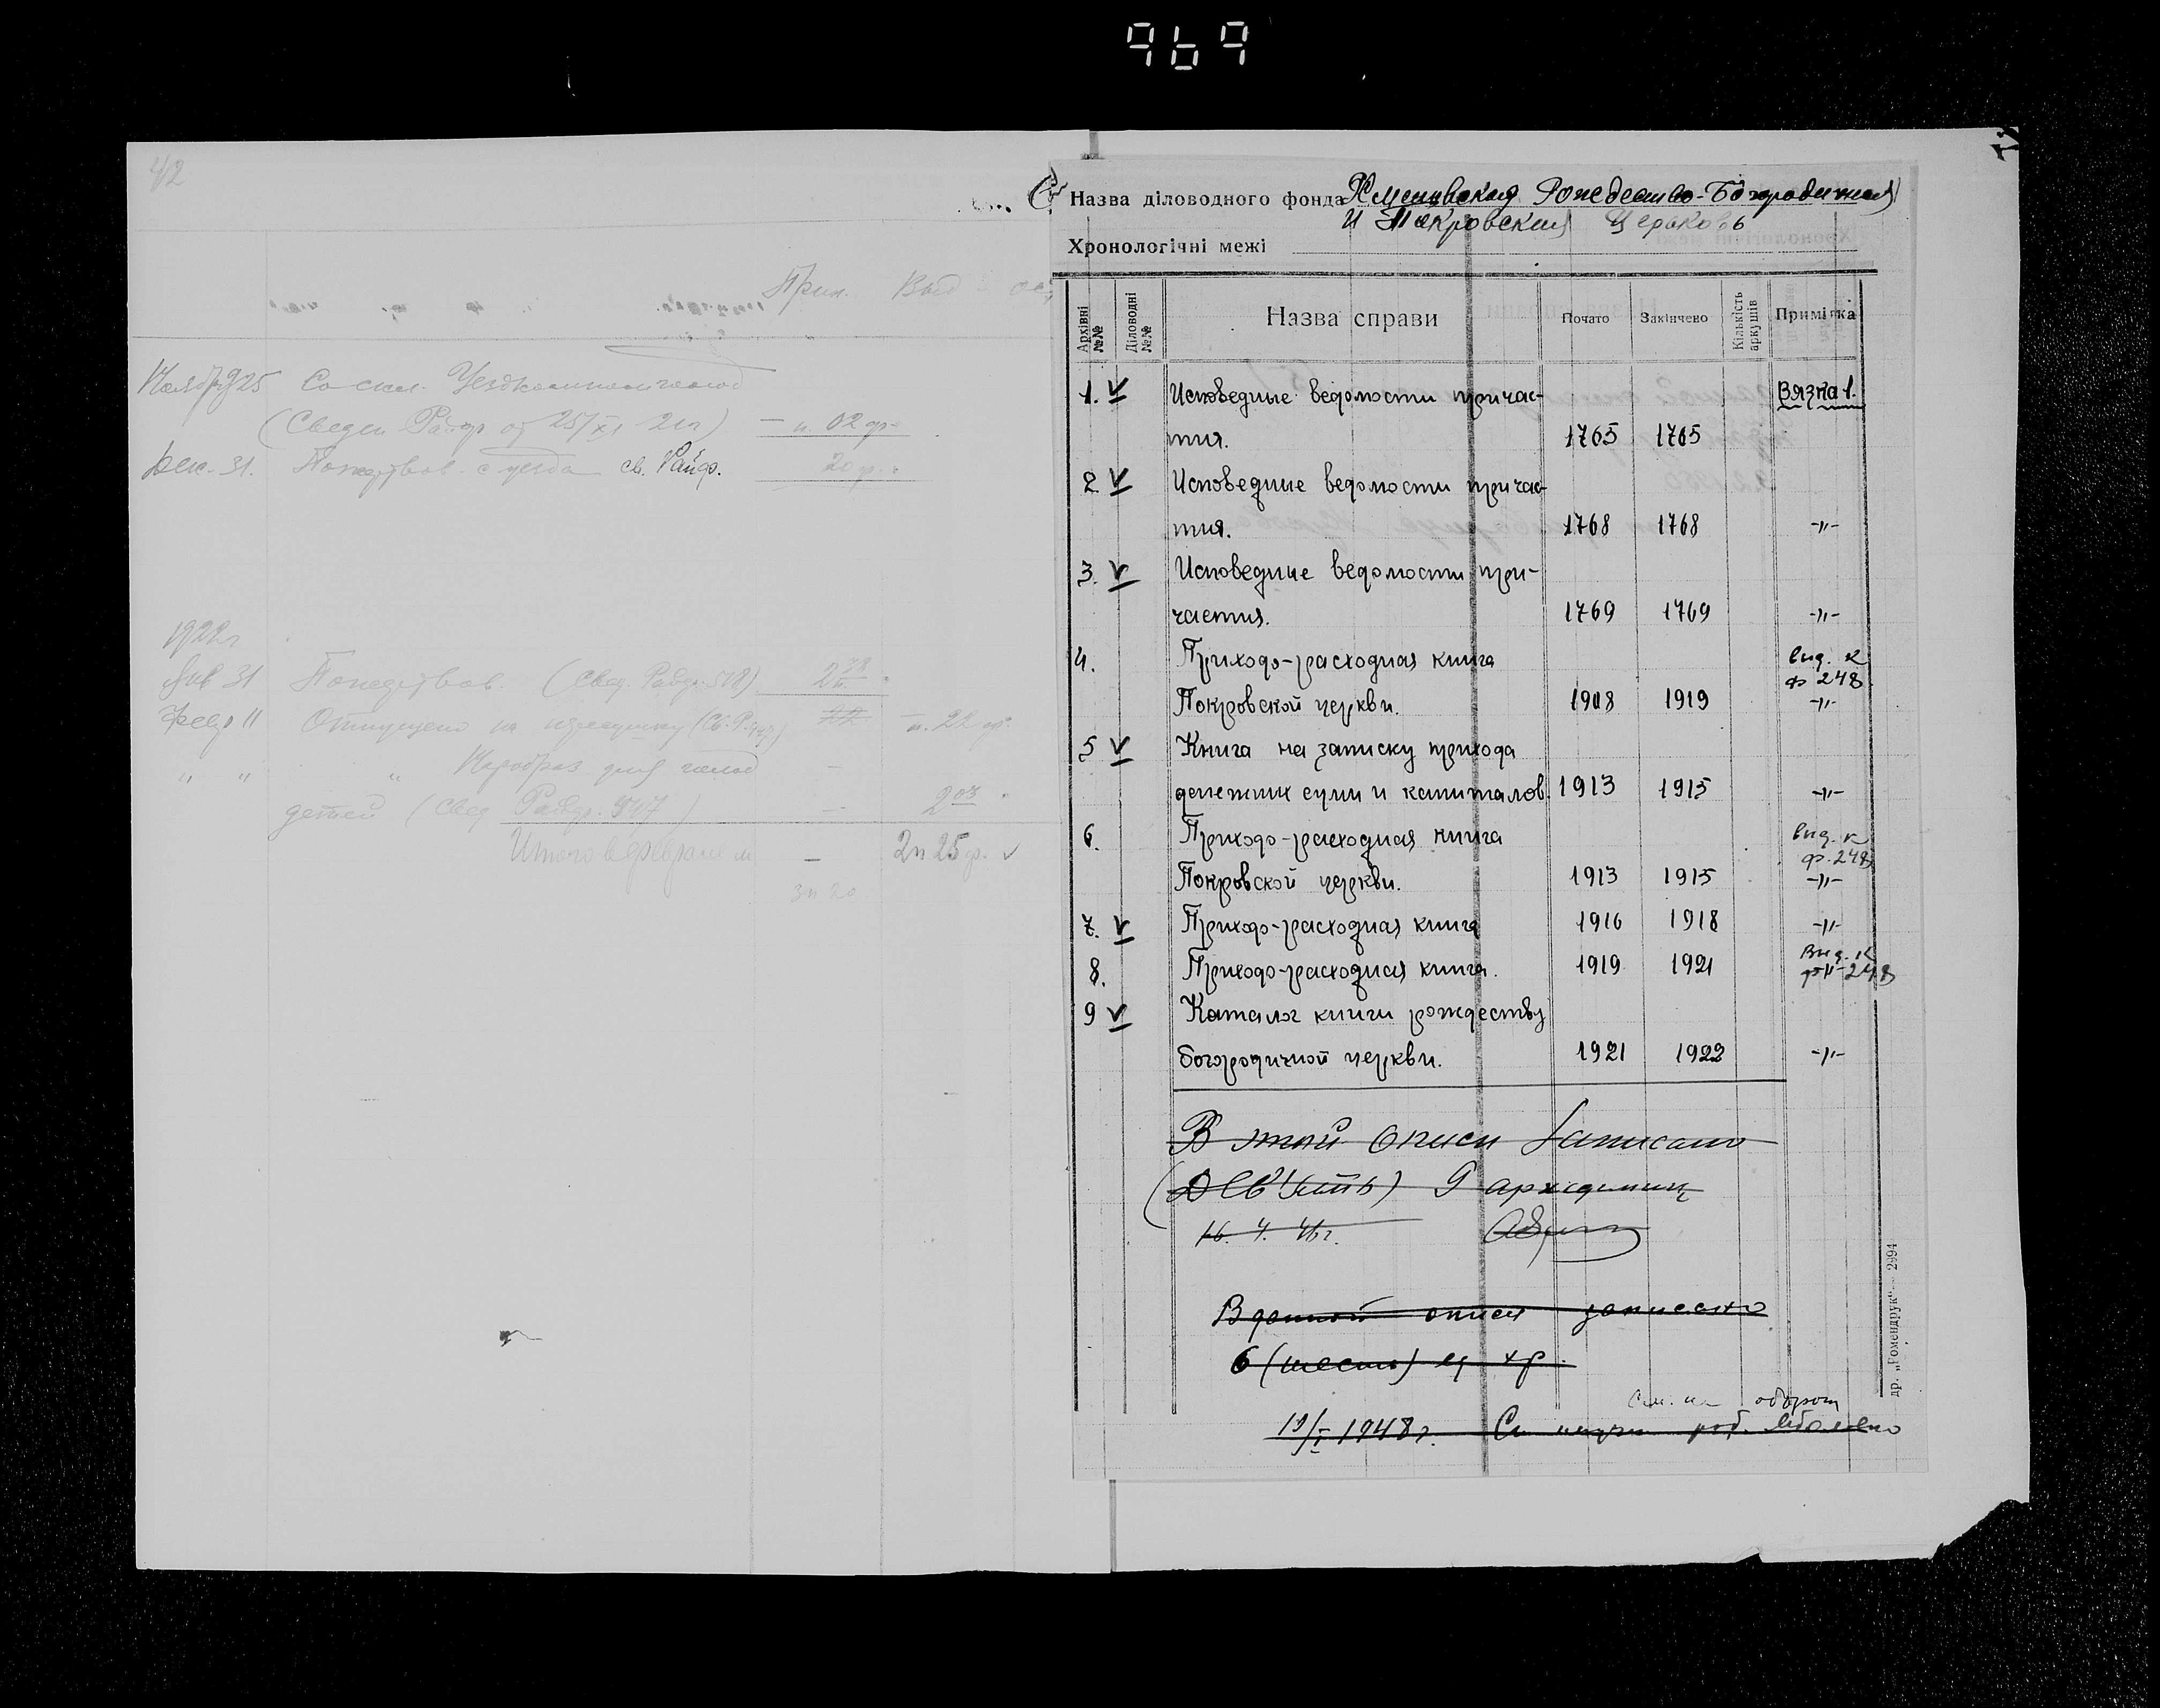 969
42
Прих.
Ноябр 25
(Сведен Райпр от 25/XI 21г) — п. 02 ф.
Дек. 31. Пожертвов. с уезда св. Райпр. 20 ф.
1922г
Янв 31 Пожертвов. (Свед. Райпр. 518)
Февр 11 Отпущено на п. 22 ф.
" " " Наробраз для голод —
детей (Свед Райпр. 547) — 2 03
Итого в феврале м — 2п 25 ф. v
3п 20
Назва діловодного фонда Хмелівская Рожедество-Богородичная
и Покровская Церковь
Хронологічні межі
Архівні №№ Діловодні №№ Назва справи Почато Закінчено Кількість аркушів Примітка
1. V Исповедные ведомости причас- Вязка 1.
тия. 1765 1765
2 V Исповедные ведомости причас-
тия. 1768 1768 -"-
3. V Исповедные ведомости при-
частия. 1769 1769 -"-
4. Приходо-расходная книга вид. к
ф 248
Покровской церкви. 1908 1919 -"-
5 V Книга на записку прихода
денежних сумм и капиталов. 1913 1915 -"-
6. Приходо-расходная книга вид. к
ф. 248
Покровской церкви. 1913 1915 -"-
7. V Приходо-расходная книга 1916 1918 -"-
8. Приходо-расходная книга. 1919 1921 вид. к
248
9 V Каталог книги рождеству
богородичной церкви. 1921 1922 -"-
В этой описи записано
(Девять) 9 архедениц
16. 4. 41г.
В данной описи записано
6 (шесть) ед хр.
См. на оборот
19/I 1948г. Ст научн раб.
др. „Ромендрук“ 2994